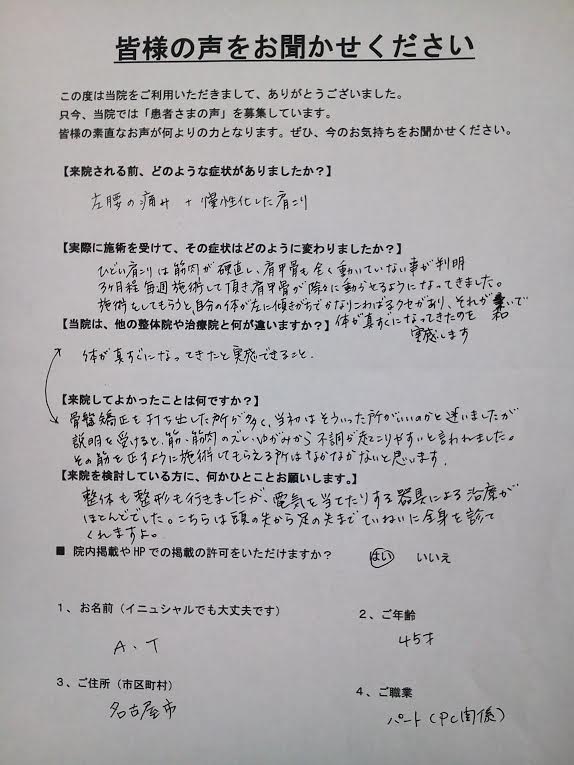 皆様の声をお聞かせください
この度は当院をご利用いただきまして、ありがとうございました。
只今、当院では「患者さまの声」を募集しています。
皆様の素直なお声が何よりの力となります。ぜひ、今のお気持ちをお聞かせください。
【来院される前、どのような症状がありましたか？】
左腰の痛み + 慢性化した肩こり
【実際に施術を受けて、その症状はどのように変わりましたか？】
ひどい肩こりは筋肉が硬直し、肩甲骨も全く動いていない事が判明
3ヶ月程毎週施術して頂き肩甲骨が除々に動かせるようになってきました。
施術をしてもらうと、自分の体が左に傾きがちでかなりこわばるクセがあり、それが和いで
体が真すぐになってきたのを
実感します
【当院は、他の整体院や治療院と何が違いますか？】
体が真すぐになってきたと実感できること.
【来院してよかったことは何ですか？】
骨盤矯正を打ち出した所が多く、当初はそういった所がいいのかと迷いましたが
説明を受けると、筋・筋肉のズレ、ゆがみから不調が起こりやすいと言われました。
その筋を正すように施術してもらえる所はなかなかないと思います.
【来院を検討している方に、何かひとことお願いします。】
整体も整形も行きましたが、電気を当てたりする器具による治療が
ほとんどでした。こちらは頭の先から足の先までていねいに全身を診て
くれますよ。
■ 院内掲載やHPでの掲載の許可をいただけますか？ はい いいえ
1、お名前（イニュシャルでも大丈夫です）
A、T
2、ご年齢
45才
3、ご住所（市区町村）
名古屋市
4、ご職業
パート（PC関係）